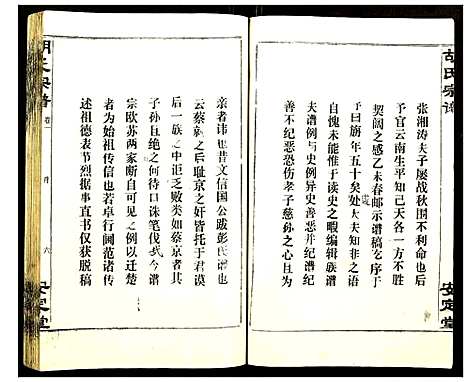 胡氏宗谱
安定堂
张湘涛夫子屡战秋围不利命也后
予官云南生平知己天各一方不胜
契阔之感乙未春邮示谱稿乞序于
予曰旃年五十矣处大夫知非之语
自愧未能惟于读史之暇编辑族谱
夫谱例与史例异史善恶并纪谱纪
善不纪恶恐伤孝子慈孙之心且为
亲者讳也昔文信国公跋彭氏谱也
云蔡勷之后耻京之奸皆托于君漠
后一族之中讵乏败类如蔡京者其
子孙且绝之何待口诛笔伐哉今谱
宗欧苏两家断自可见之例以迁楚
者为始祖传信也若卓行阃范诸传
述祖德表节烈据事直书仅获脱稿
胡氏宗谱
卷一
六
安定堂